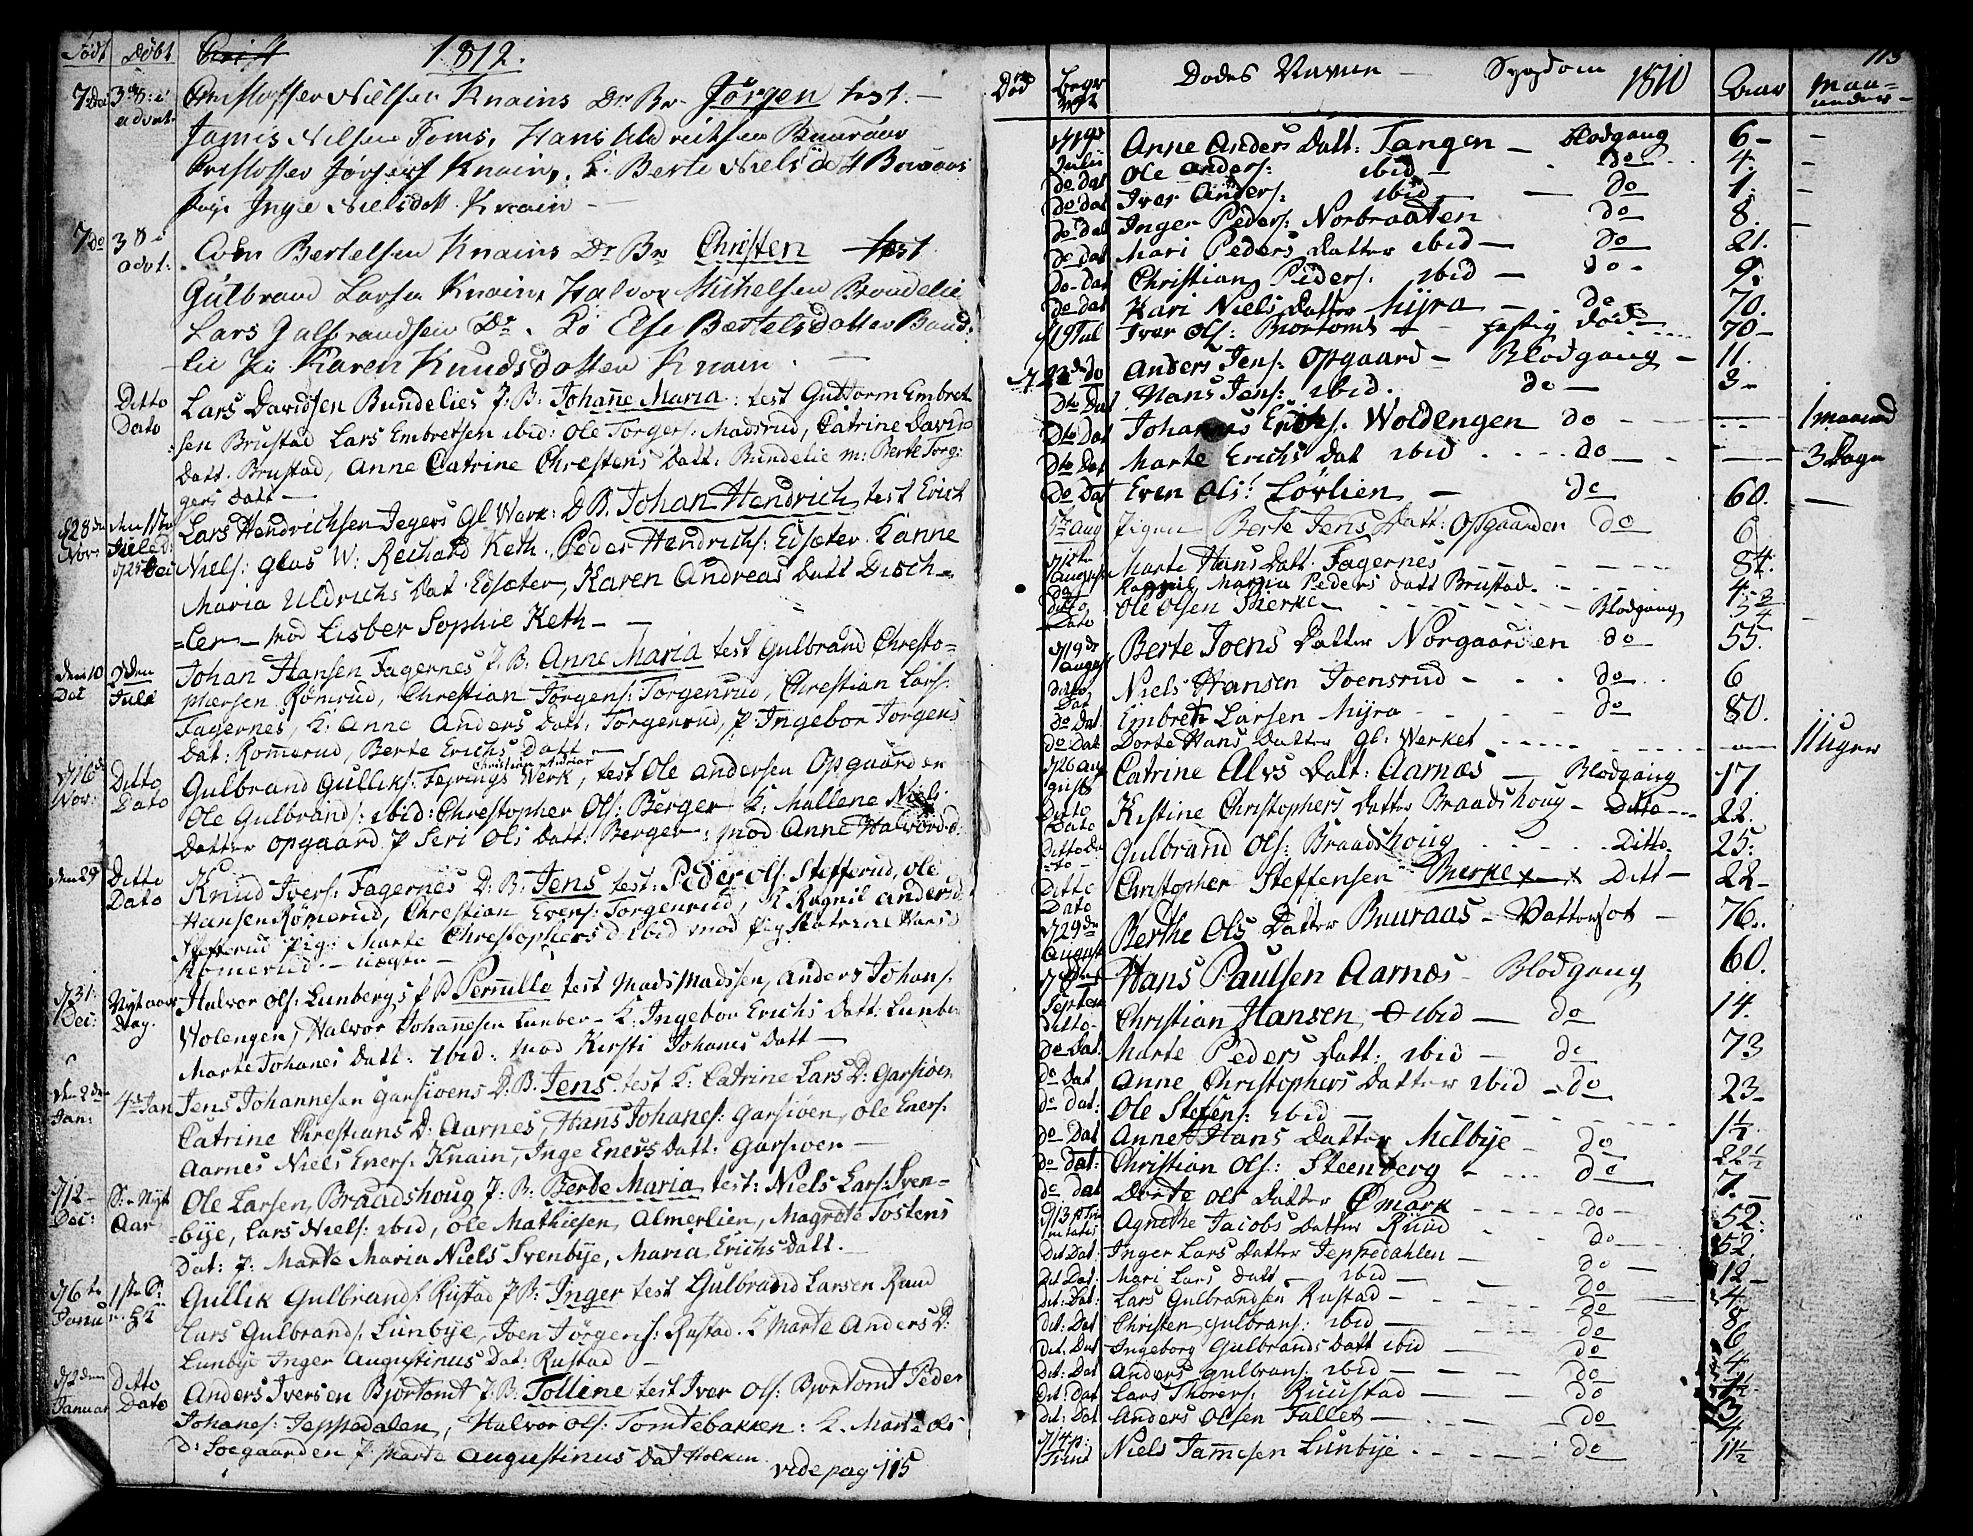 Født Døbt 1812.
7 De 3 S: i advt. Christoffer Nielsen Knains Dr: Br. Jörgen test. -
James Nilsen Toms, Hans Uldrichsen Buuraas
Kristoffer Jörgens Knain, K: Berte Nielsdatt Buuraas
Pige Inge Nielsdatt Knain -
7 Do 3 S i advt: Bertelsen Knains Dr: Br Christen test
Gulbrand Larsen Knain, Halvor Mikelsen Bondelie
Lars Gulbrandsen Do. Ko Else Bertelsdotter Bund:
lie Pi Karen Knudsdotter Knain. -
Ditto Dato Lars Davidsen Bundelies P. B: Johane Maria: test Guttorm Embret
sen Brustad Lars Embretsen ibid: Ole Torgers: Madsrud, Catrine Davids
Datt. Brustad, Anne Catrine Chrestens Datt: Bundelie m: Berte Torg:
gers Datt -
d 28de Nov: den 1ste Juled: d 25 Dec Lars Hendrichsen Jegers Gl Werk: D B. Johan Hendrich test Erich
Niels: glas W: Reichard Keth. Peder Hendrichs: Edsæter. Kanne
Maria Uldrichs Dat Edsæter, Karen Andreas Datt Disch-
=ler - mod Lisber Sophie Keth -
den 10 Det 2den Jule Johan Hansen Fagernes P. B: Anne Maria test Gulbrand Chresto-
phersen Römrud, Chrestian Torgens: Torgenrud, Chrestian Lars:
Fagernes, K: Anne Anders Datt: Torgenrud, P Ingebor Torgens
Dat: Römerud, Berte Erichs Datt -
d 16de Nov: Ditto Dato Gulbrand Gulliks: Feirings Werk, test Ole Andersen Opgaarden
Ole Gulbrands: ibid: Christopher Ols: Berger K: Mallene Niels
Datter Opgaard P Seri Ols Datt: Berger: mod Anne Halvord:
den 29 Ditto Dato Knud Ivers: Fagernes D: B: Jens test: Peder Ols: Stefferud, Ole
Hansen Römerud, Chrestian Evens: Torgenrud, K Rognil Anders D:
Stefferud Pig: Marte Chrestophers D ibid mod Pig Katrine Hans
Römerud -
d 31: Dec: Nytaars Dag. Halvor Ols: Lunbergs P B Pernille test Mads Madssen, Anders Johans:
Wolengen, Halvor Johanesen Lunber - K: Ingebor Erichs Datt: Lunber
Marte Johanes Datt: ibid: mod Kirsti Johanis Datt -
den 2den Jan: 4de Jan Jens Johannesen Garsioens D: B. Jens. test K: Catrine Lars D: Garsiöen
Catrine Chrestians D: Aarnes, Hans Johanes: Garsiöen, Ole Eners:
Aarnes Niels Eners: Knain, Inge Eners Datt: Garsiöen -
d 12 - Dec: S: n Nyt Aar Ole Larsen Braadshoug P: B: Berte Maria test: Niels Lars: Sven-
=bye, Lars Niels: ibid, Ole Mathiesen Almerlien, Magrete Tostens
Dat: P: Marte Maria Niels Svenbye, Maria Erichs Datt. -
d 6te Janu 1ste S: Gullik Gulbrands Rustad P B: Inger test Gulbrand Larsen Ruud
Lars Gulbrands: Lunbye, Iven Jörgens: Rustad. K Marte Anders D:
Lunbye Inger Augustinus Dat: Rustad -
d 2den Januar Ditto Dato Anders Iversen Bjortomt P. B: Tolline test Iver Ols: Bjortomt Peder
Johanes: Jeppedalen, Halvor Ols: Tomtebakken: K. Marte Ols
D: Soegaarden P Marte Augustinus Dat Holken
vide pag 115
113
Død begr Dødes Navne - Sygdom 1810 Aar Maaneder -
Julii Anne Anders Datt: Tangen - Blodgang 6 -
Do Dat Ole Anders: ibid - do 4.
Do Dat Iver Anders: ibid - do 1.
Do Dat Inger Peders: Norbraaten do 8.
Do Dat Mari Peders Datter ibid - do 21.
Do Dat Christian Peders: ibid - do - 9.
Do Dat Kari Niels Datter Myra - do 70.
d 19 Jul Iver Ols: Biortomt - hastig død 70 -
d 22de do Anders Jens: Opgaard - Blodgang - 11.
Dto Dat Hans Jens: ibid. do - 3 -
Dto Dat Johannes Erichs: Woldengen do - 1 maaned
Dto Dat Marte Erichs Dat ibid do - 3 Dage
Do Dat Even Ols: Lövlien - do 60.
Aug Pigen Berte Jens Datt: Opgaarden do 6
August Marte Hans Datt Fagernes 84.
do Rognil Maria Peders Datt Brustad. 4
ditto Dato Ole Olsen Skierke Blodgang 5 3/4
d 19de August Berte Joens Datter Norgaarden do 55.
ditto Dat Niels Hansen Joensrud - do 6
Do Dat Embreth Larsen Myra do 80.
Do Dat Dorte Hans Datter Gl: Werket 11 Uger
d 26 August Catrine Alvs Datt: Aarnæs - Blodgang 17.
Ditto Dato Kirstine Christophers Datter Braadshoug - Ditto 22.
Ditto Dato Gulbrand Ols: Braadshoug Ditto 25.
Ditto Dato Christopher Steffensen Ditt - 22 -
d 29de August Berthe Ols Datter Buuraas - Vattersot - 76.
d Septem Hans Paulsen Aarnæs - Blodgang 60.
ditto Christian Hansen, ibid - do 14.
Do Dat. Marte Peders Datt: ibid - do 73
Do Dat Anne Christophers Datter ibid - do 23 -
Do Dat: Ole Stefens: ibid - 1½
Do Dat Anne Hans Datter Melbye do 22½
Do Dat: Christian Ols: Steenberg - do 7. -
Do Dat Dorte Ols Datter Ömark do - 52:
d 13 p Trinitatis Agnethe Jacobs Datter Ruud do 52.
Dit Dat: Inger Lars Datter Jeppedahlen - do 12 -
Dit Dat: Mari Lars Datt - ibid - do 4
Dit: Dat: Lars Gulbrandsen Rustad - do 8
dit: Dat Christen Gulbrans: ibid - do 6
dit: Dat Ingeborg Gulbrands Datt ibid - do 4
dit: Dat Anders Gulbrans: ibid - do 1½
Dit Dat Lars Thorers: Ruustad - do 3
dit: Dat Anders Olsen Fallet - do 4
d 14 p: Trinit Niels Jamesen Lunbye do 1½